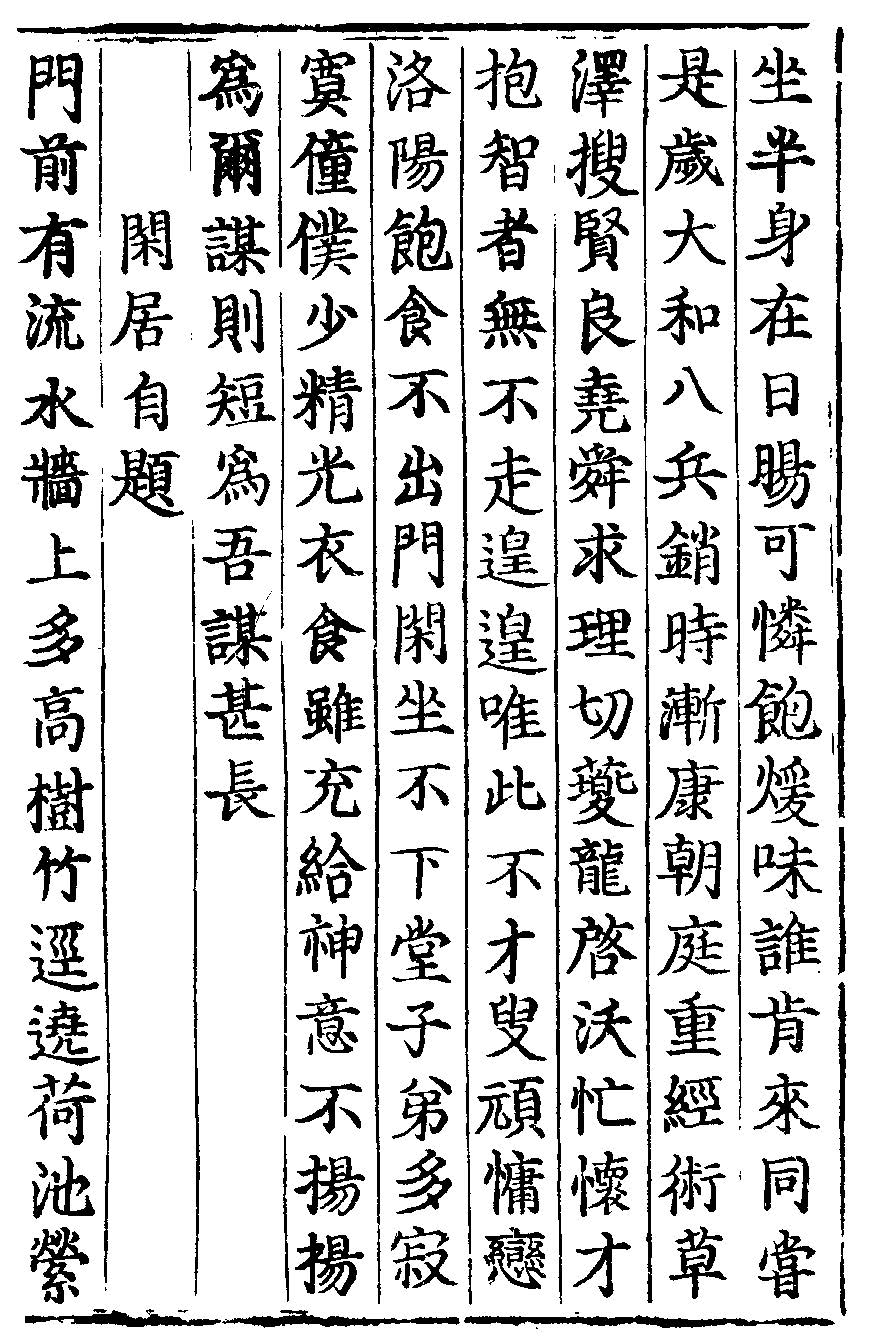 坐半身在日暘可憐飽煖味誰肯來同嘗
是歲大和八兵銷時漸康朝庭重經術草
澤搜賢良堯舜求理切夔龍啓沃忙懷才
抱智者無不走遑遑唯此不才叟頑慵戀
洛陽飽食不出門閑坐不下堂子弟多寂
寞僮僕少精光衣食雖充給神意不揚揚
爲爾謀則短爲吾謀甚長
閑居自題
門前有流水牆上多高樹竹逕遶荷池縈